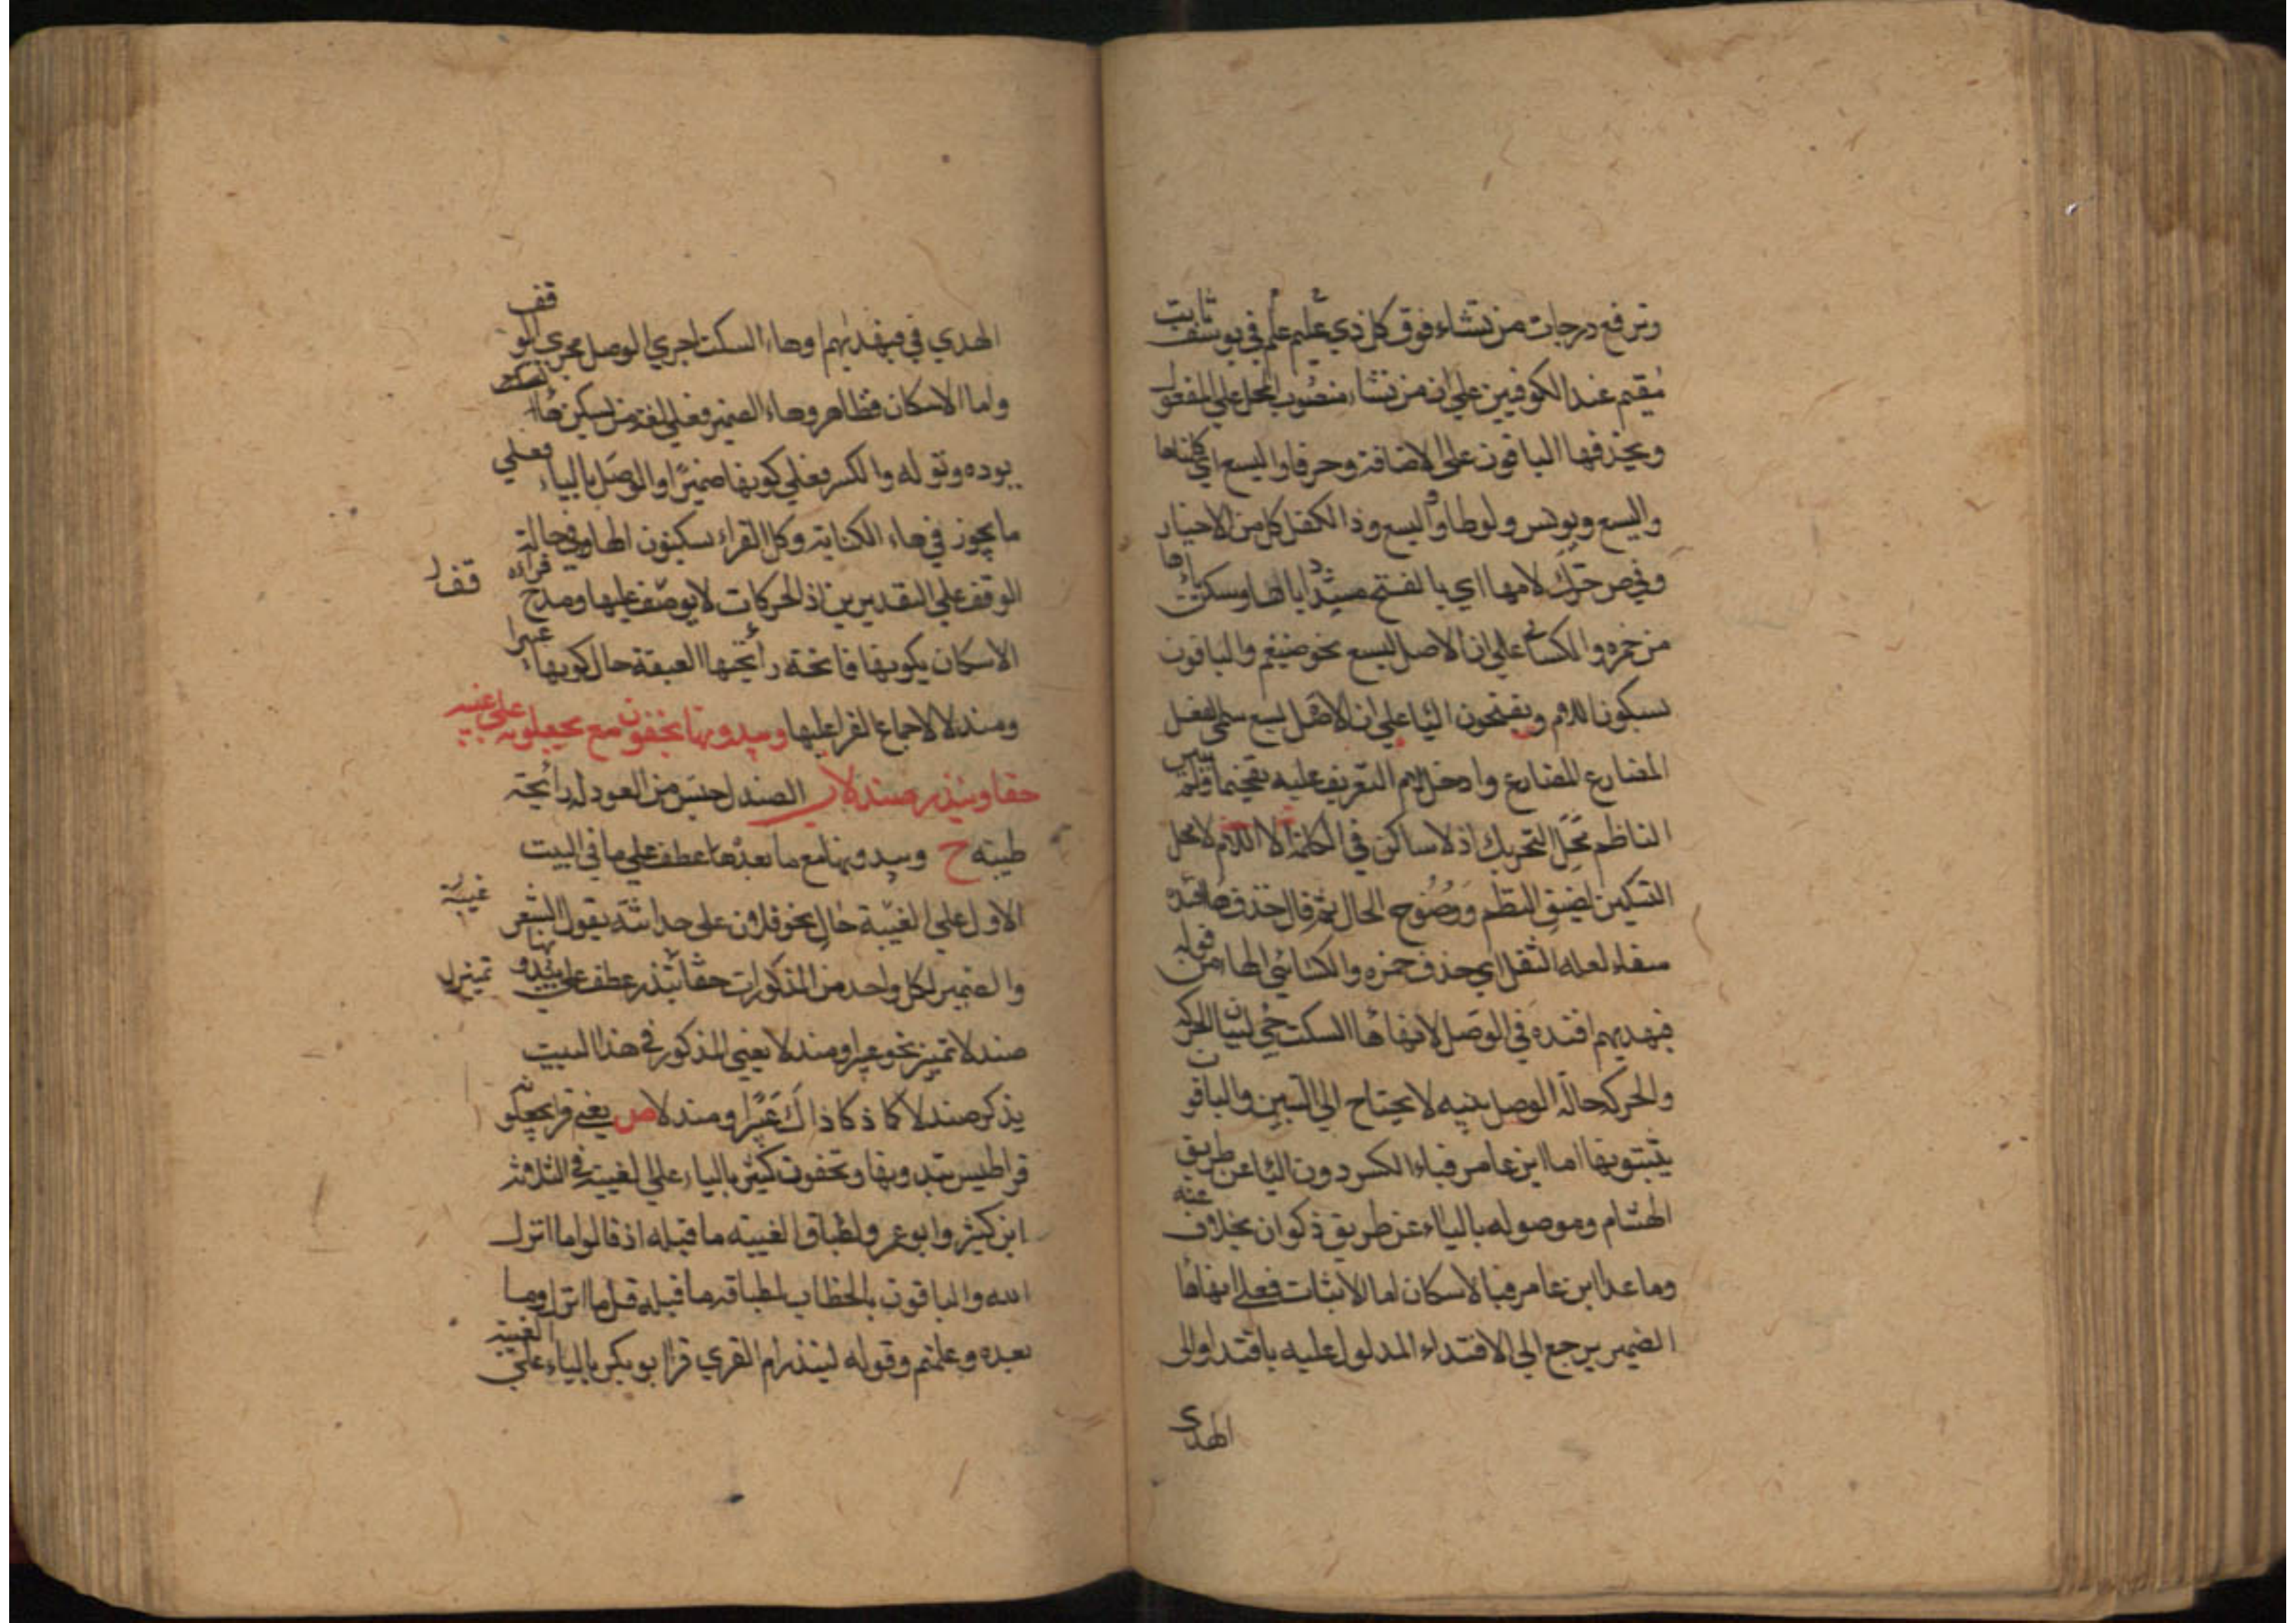 ونرفع درجات من نشاء فوق كل ذي علم عليم في يوسف ثابت
مقيم عند الكوفيين علي ان من نشاء منصوب المحل علي المفعول
ويحذفها الباقون علي الاضافة وحرفا واليسع اي كلمتاها
واليسع ويونس ولوطا واليسع وذا الكفل كل من الاخيار
وفي ص حرك لامها اي بالفتح مشددا ياءها وسكن
من حمزه والكسائي علي ان الاصل ليسع نحو ضيغم والباقون
بسكون اللام ويفتحون اليا علي ان الاصل يسع سمي الفعل
المضارع للمضارع وادخل لام التعريف عليه
الناظم محل التحريك اذ لا ساكن في الكلمة الا اللام لا محل
التسكين لضيق النظم ووضوح الحال ثم قال حذف هاقتده
شفاء لعله الثقل اي حذف حمزه والكسائي الهاء من قوله
فبهديهم اقتده في الوصل لانها ها السكت جي لبيان الحركة
والحركة حالة الوصل بينه لا يحتاج الي التبيين والباقون
يثبتونها اما ابن عامر فباء الكسر دون اليا عن طريق
الهشام وموصوله بالياء عن طريق ذكوان بخلاف عنه
وما عدا ابن عامر فبالاسكان اما الاثبات فعلي انها ها
الضمير يرجع الي الاقتداء المدلول عليه باقتد او الى
الهدي
الهدي في فبهديهم او هاء السكت اجري الوصل مجري الوقف
واما الاسكان فظاهر وهاء الضمير فعلي لغة من يسكن هاء
يوده ونوله والكسر فعلي كونها ضميرا والوصل بالياء فعلي
ما يجوز في هاء الكناية وكل القراء يسكنون الهاء في حالة
الوقف علي التقديرين اذ الحركات لا يوقف عليها ومدح قراءة
الاسكان بكونها فائحة رائحتها العبقة حال كونها عبيرا
ومندلا لاجماع القرا عليها وتبدونها تخفون مع تجعلونه علي غيبه
حقا وينذر صندلا الصندل جنس من العود له رائحة
طيبه ح وتبدونها مع ما بعدها عطف علي ما في البيت
الاول علي الغيبة حال نحو فلان على حداثته يقول الشعر
غيبة
والضمير لكل واحد من المذكورات حقا ينذر عطف علي تبدونها
تمييز ل
صندلا تمييز نحو عبيرا ومندلا يعني المذكور في هذا البيت
يذكر صندلا كما ذكا ذاك عبيرا ومندلا ص يعني قرا يجعلونه
قراطيس تبدونها وتخفون كثيرا بالياء علي الغيبة في الثلاثة
ابن كثير وابو عمرو لطباق الغيبه ما قبله اذ قالوا ما انزل
الله والباقون بالخطاب لطباقه ما قبله قل من انزل وما
بعده وعلمتم وقوله لينذر ام القري قرا ابو بكر بالياء علي الغيبة